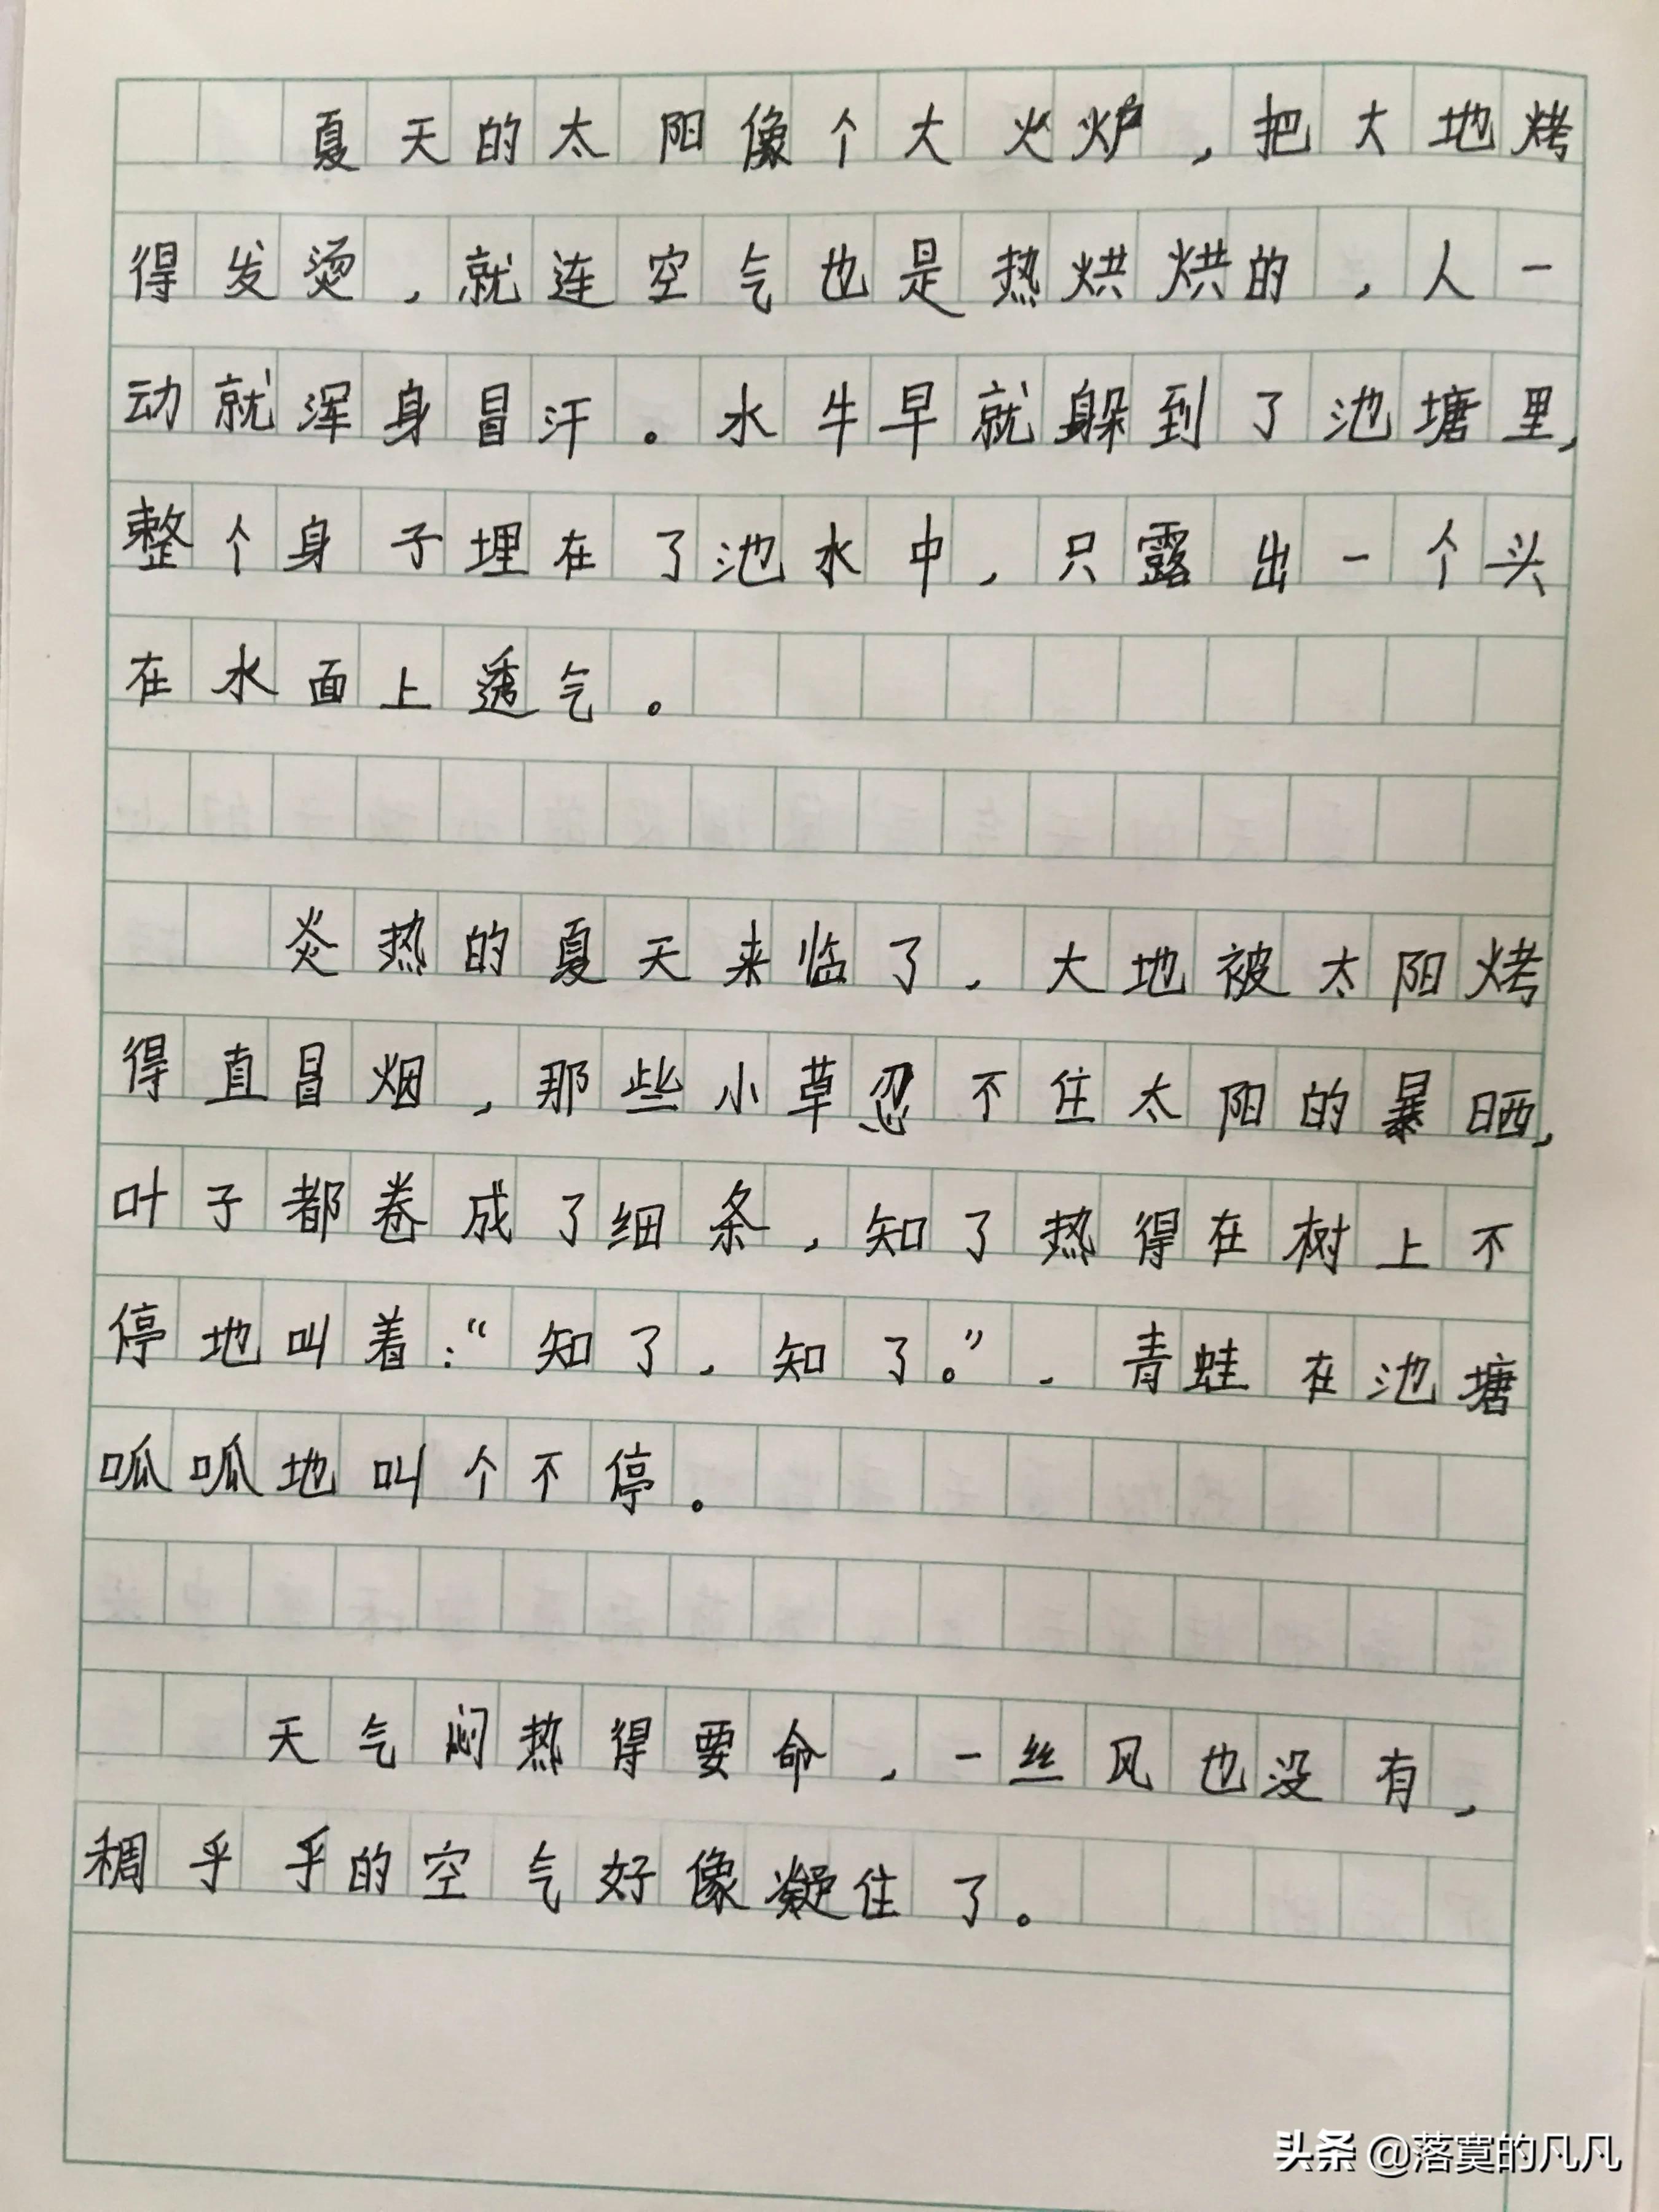 夏天的太阳像个大火炉，把大地烤
得发烫，就连空气也是热烘烘的，人一
动就浑身冒汗。水牛早就躲到了池塘里，
整个身子埋在了池水中，只露出一个头
在水面上透气。
炎热的夏天来临了，大地被太阳烤
得直冒烟，那些小草忍不住太阳的暴晒，
叶子都卷成了细条，知了热得在树上不
停地叫着：“知了，知了。”，青蛙在池塘
呱呱地叫个不停。
天气闷热得要命，一丝风也没有，
稠乎乎的空气好像凝住了。
头条 @落寞的凡凡